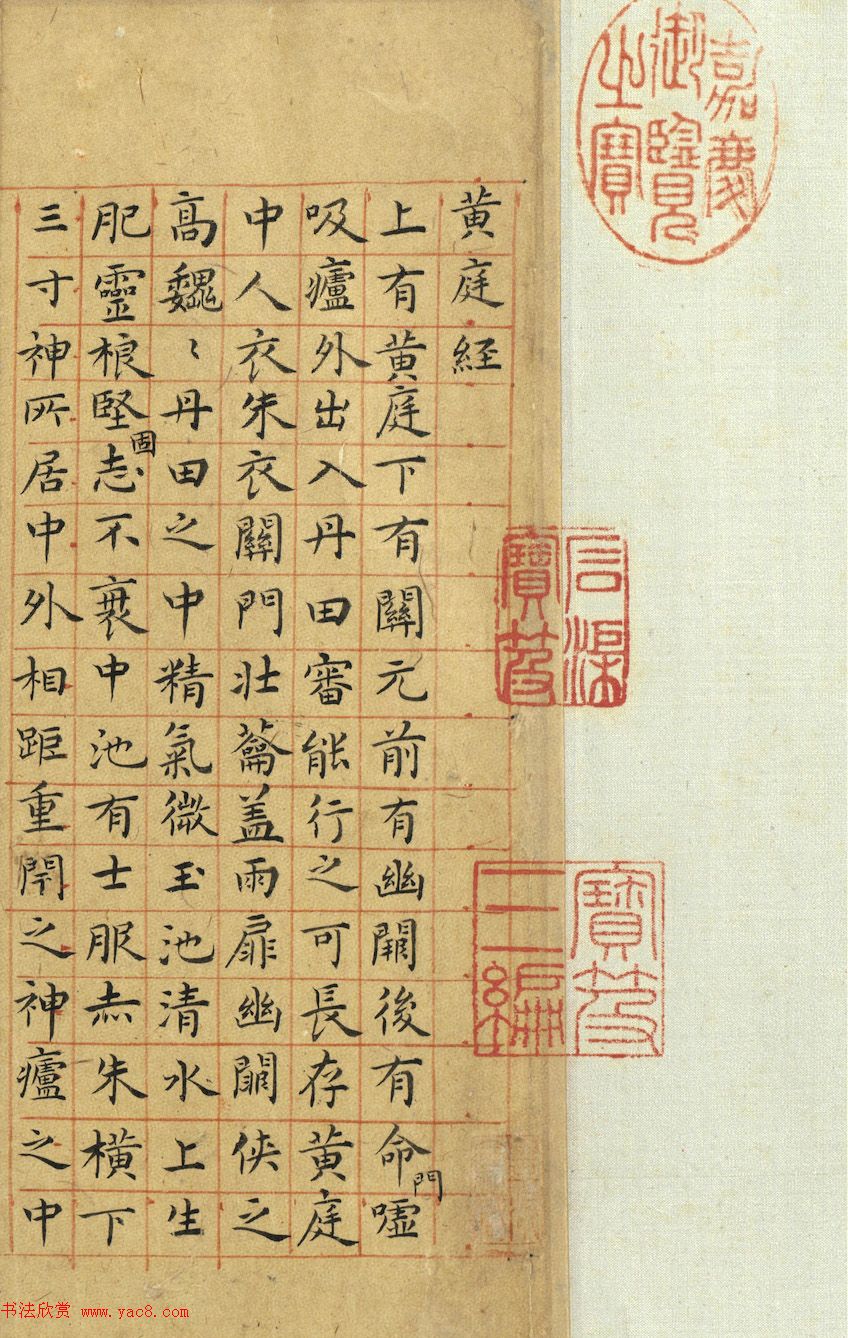 嘉慶
御覽
之寶
石渠
寶笈
寶笈
三編
黃庭經
上有黃庭下有關元前有幽闕後有命門噓
吸廬外出入丹田審能行之可長存黃庭
中人衣朱衣關門壯蘥盖兩扉幽闕俠之
高魏〻丹田之中精氣微玉池清水上生
肥靈根堅固志不衰中池有士服赤朱橫下
三寸神所居中外相距重閇之神廬之中
书法欣赏 www.yac8.com